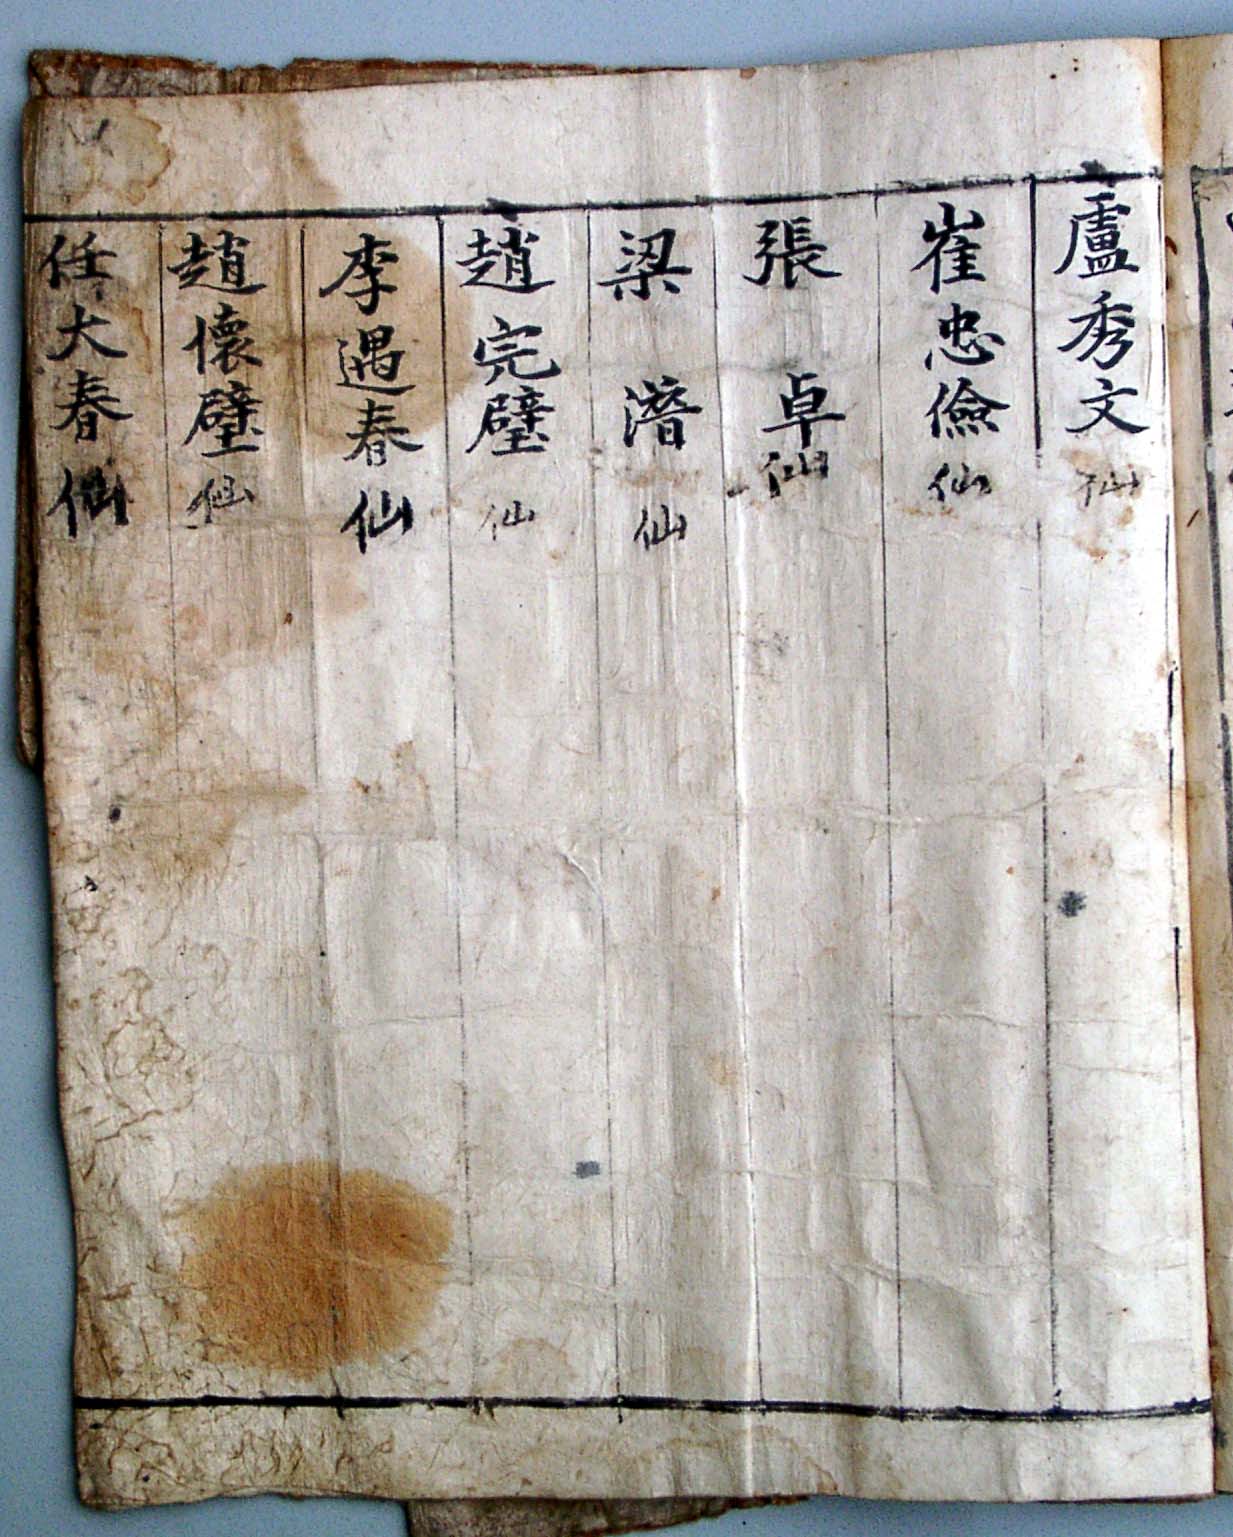 盧秀文仙
崔忠儉仙
張卓仙
梁潛仙
趙完璧仙
李遇春仙
趙懷璧仙
任大春仙